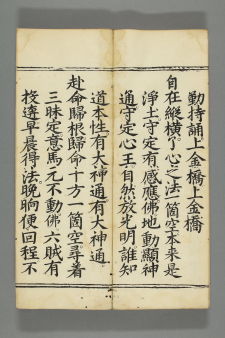 勤持誦上金橋上金橋
自在縱橫了心之法一箇空本来是
淨土守定有感應佛地動顯神
通守定心王自然放光明誰知
道本性有大神通有大神通
赴命歸根歸命十方一箇空尋着
三昧定意馬元不動佛六賊有
投逩早晨得法晚晌便回程不